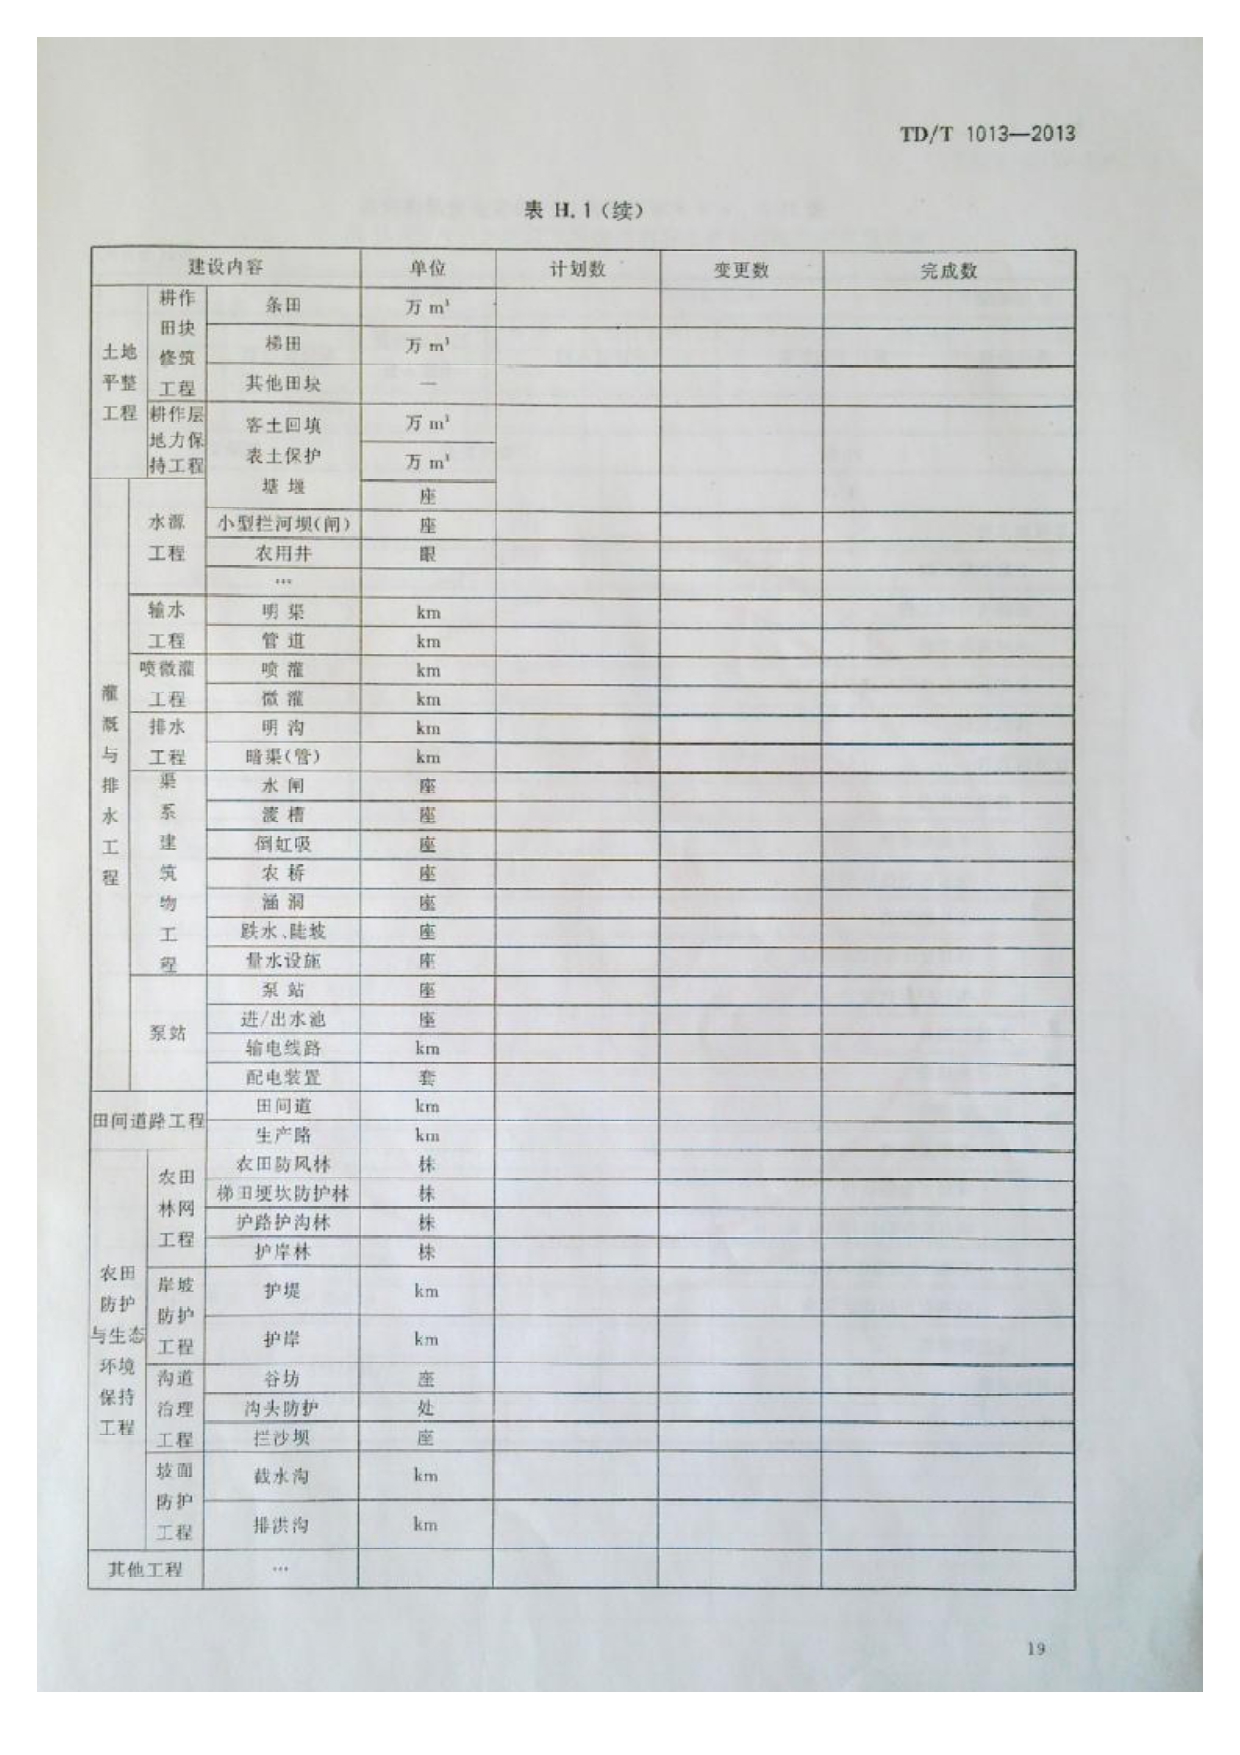 TD/T 1013—2013
表 H.1(续)
建设内容 单位 计划数 变更数 完成数
土地平整工程 耕作田块修筑工程 条田 万 m³
梯田 万 m³
其他田块 —
耕作层地力保持工程 客土回填 万 m³
表土保护 万 m³
灌溉与排水工程 水源工程 塘堰 座
小型拦河坝(闸) 座
农用井 眼
…
输水工程 明渠 km
管道 km
喷微灌工程 喷灌 km
微灌 km
排水工程 明沟 km
暗渠(管) km
渠系建筑物工程 水闸 座
渡槽 座
倒虹吸 座
农桥 座
涵洞 座
跌水、陡坡 座
量水设施 座
泵站 泵站 座
进/出水池 座
输电线路 km
配电装置 套
田间道路工程 田间道 km
生产路 km
农田防护与生态环境保持工程 农田林网工程 农田防风林 株
梯田埂坎防护林 株
护路护沟林 株
护岸林 株
岸坡防护工程 护堤 km
护岸 km
沟道治理工程 谷坊 座
沟头防护 处
拦沙坝 座
坡面防护工程 截水沟 km
排洪沟 km
其他工程 …
19